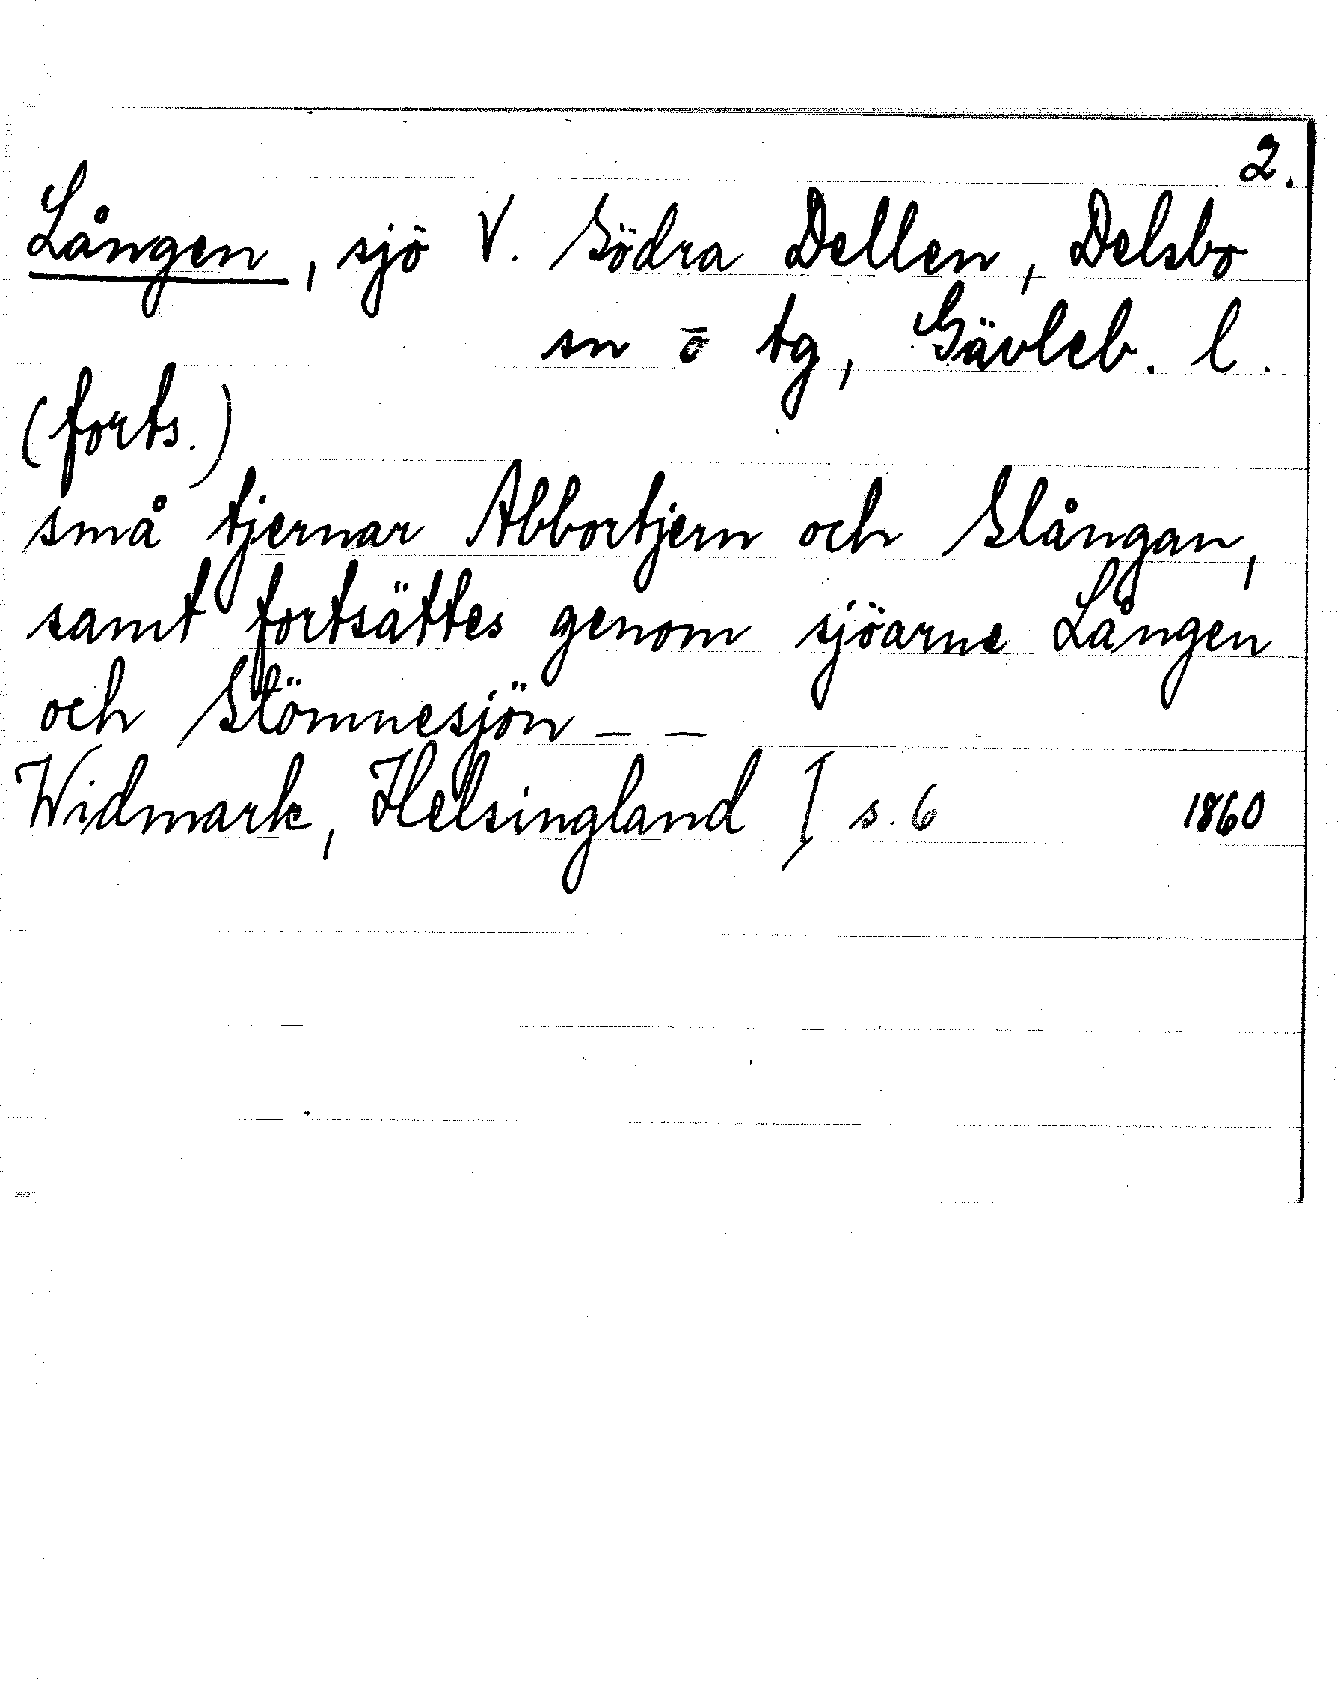 2.
Lången, sjö V. Södra Dellen, Delsbo
sn o tg, Gävleb. l.
(forts.)
små tjernar Abbortjern och Slångan,
samt fortsättes genom sjöarne Lången
och Stömnesjön – –
Widmark, Helsingland I s. 6 1860